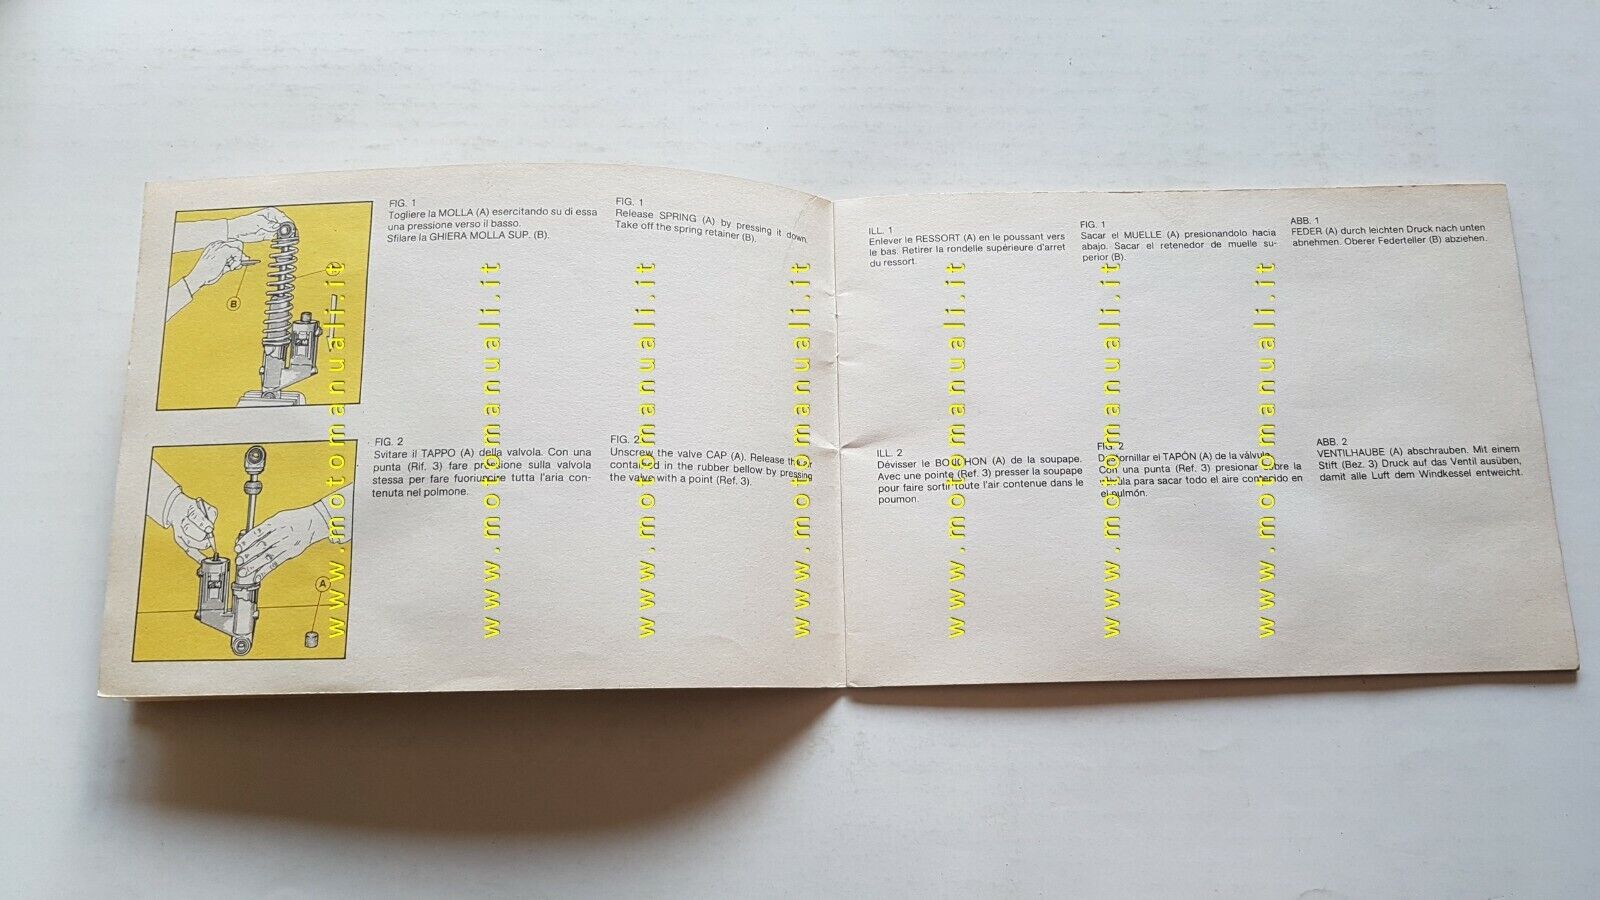 FIG. 1
Togliere la MOLLA (A) esercitando su di essa
una pressione verso il basso.
Sfilare la GHIERA MOLLA SUP. (B).
FIG. 1
Release SPRING (A) by pressing it down.
Take off the spring retainer (B).
ILL. 1
Enlever le RESSORT (A) en le poussant vers
le bas. Retirer la rondelle supérieure d'arret
du ressort.
FIG. 1
Sacar el MUELLE (A) presionandolo hacia
abajo. Sacar el retenedor de muelle su-
perior (B).
ABB. 1
FEDER (A) durch leichten Druck nach unten
abnehmen. Oberer Federteller (B) abziehen.
B
FIG. 2
Svitare il TAPPO (A) della valvola. Con una
punta (Rif. 3) fare pressione sulla valvola
stessa per fare fuoriuscire tutta l'aria con-
tenuta nel polmone.
FIG. 2
Unscrew the valve CAP (A). Release the air
contained in the rubber bellow by pressing
the valve with a point (Ref. 3).
ILL. 2
Dévisser le BOUCHON (A) de la soupape.
Avec une pointe (Ref. 3) presser la soupape
pour faire sortir toute l'air contenue dans le
poumon.
FIG. 2
Destornillar el TAPÓN (A) de la válvula.
Con una punta (Ref. 3) presionar sobre la
válvula para sacar todo el aire contenido en
el pulmón.
ABB. 2
VENTILHAUBE (A) abschrauben. Mit einem
Stift (Bez. 3) Druck auf das Ventil ausüben,
damit alle Luft dem Windkessel entweicht.
A
www.motomanuali.it
www.motomanuali.it
www.motomanuali.it
www.motomanuali.it
www.motomanuali.it
www.motomanuali.it
www.motomanuali.it